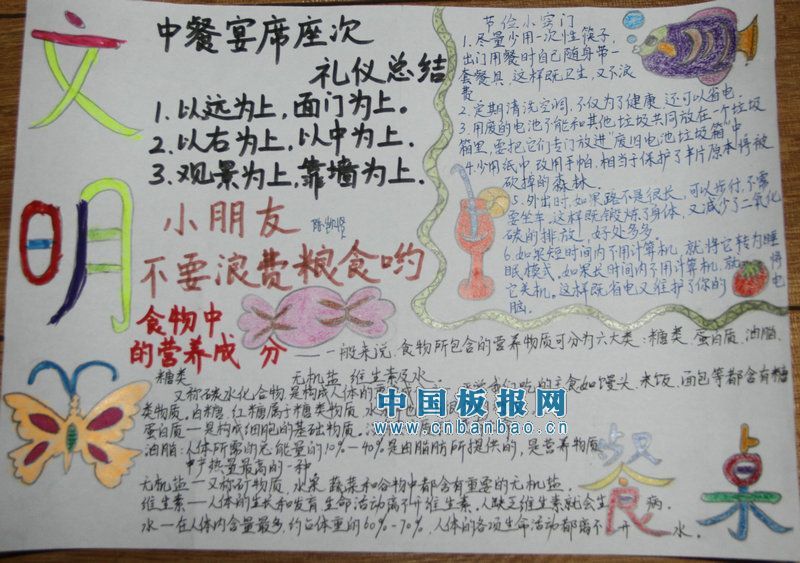 文明
中餐宴席座次
礼仪总结
1. 以远为上，面门为上。
2. 以右为上，以中为上。
3. 观景为上，靠墙为上。
小朋友
不要浪费粮食哟
节俭小窍门
1. 尽量少用一次性筷子，
出门用餐时自己随身带一
套餐具，这样既卫生，又不浪
费
2. 定期清洗空调，不仅为了健康，还可以省电
3. 用废的电池不能和其他垃圾共同放在一个垃圾
箱里，要把它们专门放进"废旧电池垃圾箱"中
4. 少用纸巾，改用手帕，相当于保护了半片原本将被
砍掉的森林。
5. 外出时，如果路不是很长，可以步行，不需
要坐车，这样既锻炼了身体，又减少了二氧化
碳的排放，好处多多。
6. 如果短时间内不用计算机，就将它转为睡
眠模式，如果长时间内不用计算机，就将
它关机。这样既省电又维护了你的电
脑。
食物中
的营养成分
——一般来说，食物所包含的营养物质可分为六大类：糖类、蛋白质、油脂、
无机盐、维生素及水。
糖类
又称碳水化合物是构成人体的
我们吃的主食如馒头、米饭、面包等都含有糖
类物质，白糖、红糖属于糖类物质
蛋白质—是构成细胞的基础物质。
油脂：人体所需的总能量的10%—40%是由脂肪所提供的，是营养物质
中产热量最高的一种
无机盐—又称矿物质，水果、蔬菜和谷物中都含有重要的无机盐
维生素—人体的生长和发育、生命活动离不开维生素。人缺乏维生素就会生病。
水—在人体内含量最多，约占体重的60%-70%，人体的各项生命活动都离不开水。
中国板报网
www.cnbanbao.cn
餐桌